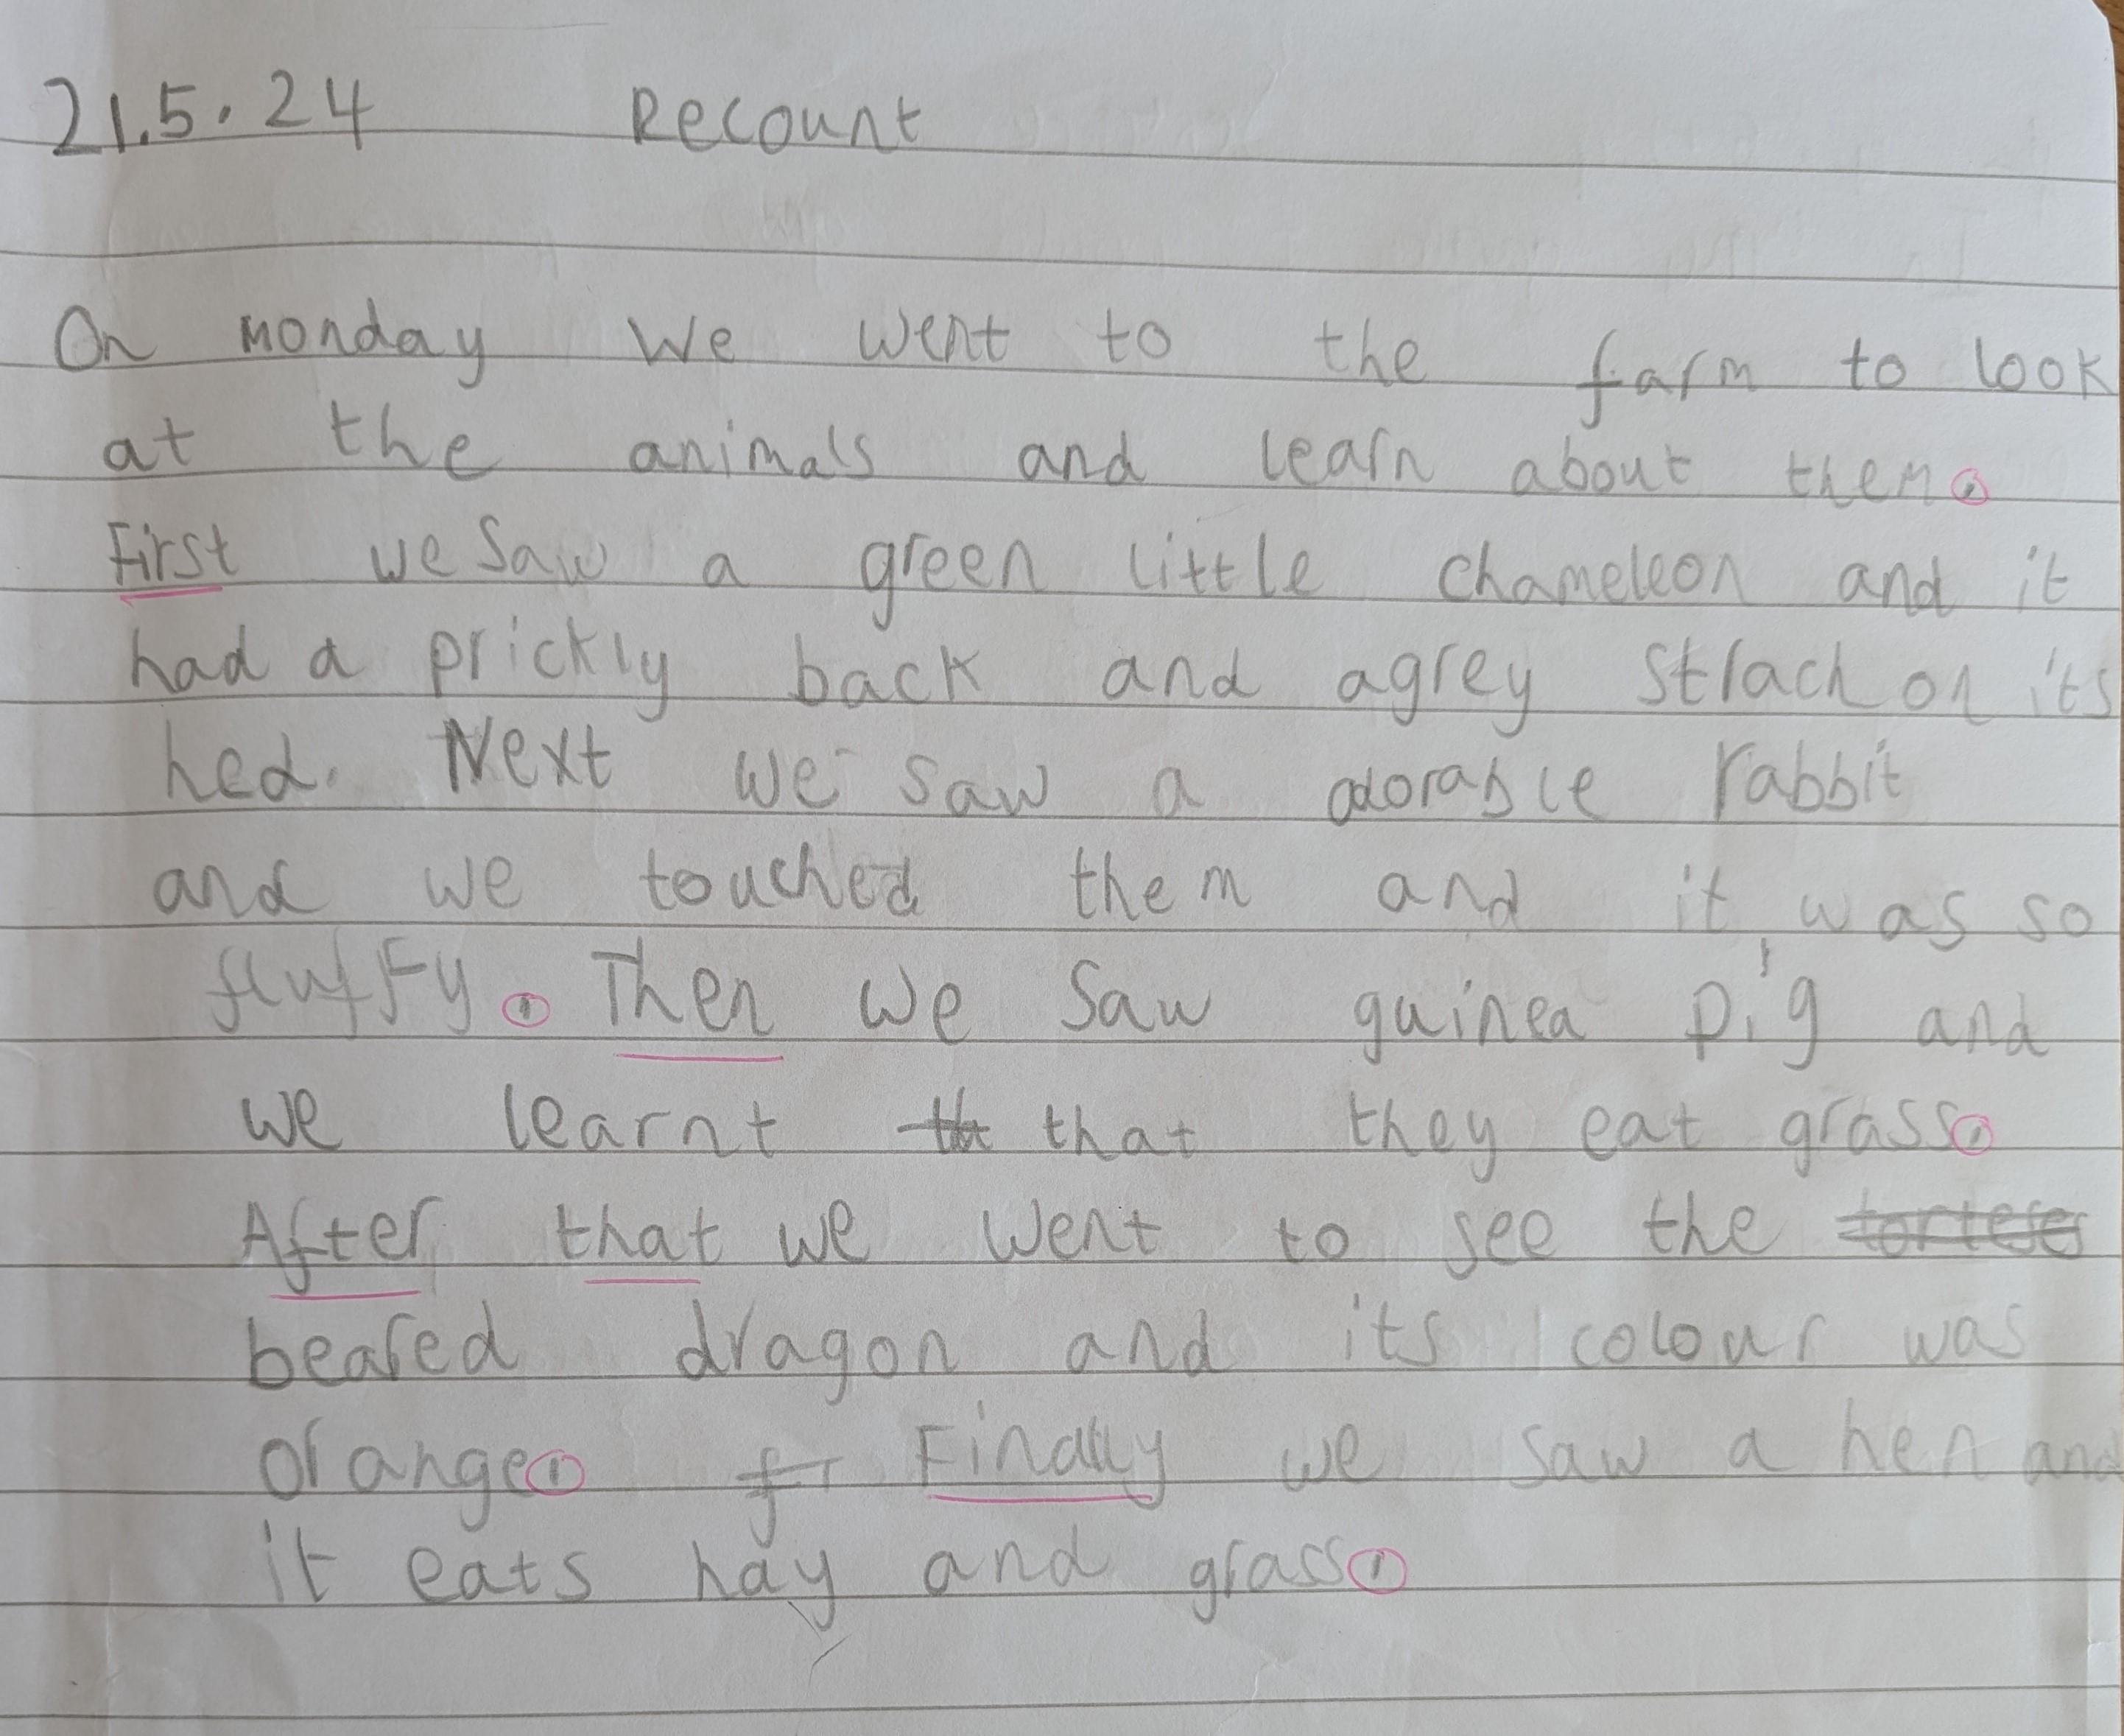 21.5.24 Recount
On monday we went to the farm to look
at the animals and learn about them.
First we saw a green little chameleon and it
had a prickly back and agrey strach on its
hed. Next we saw a adorable rabbit
and we touched them and it was so
fluffy. Then we saw guinea pig and
we learnt th that they eat grass.
After that we went to see the torteses
beared dragon and its colour was
orange. f Finally we saw a hen and
it eats hay and grass.